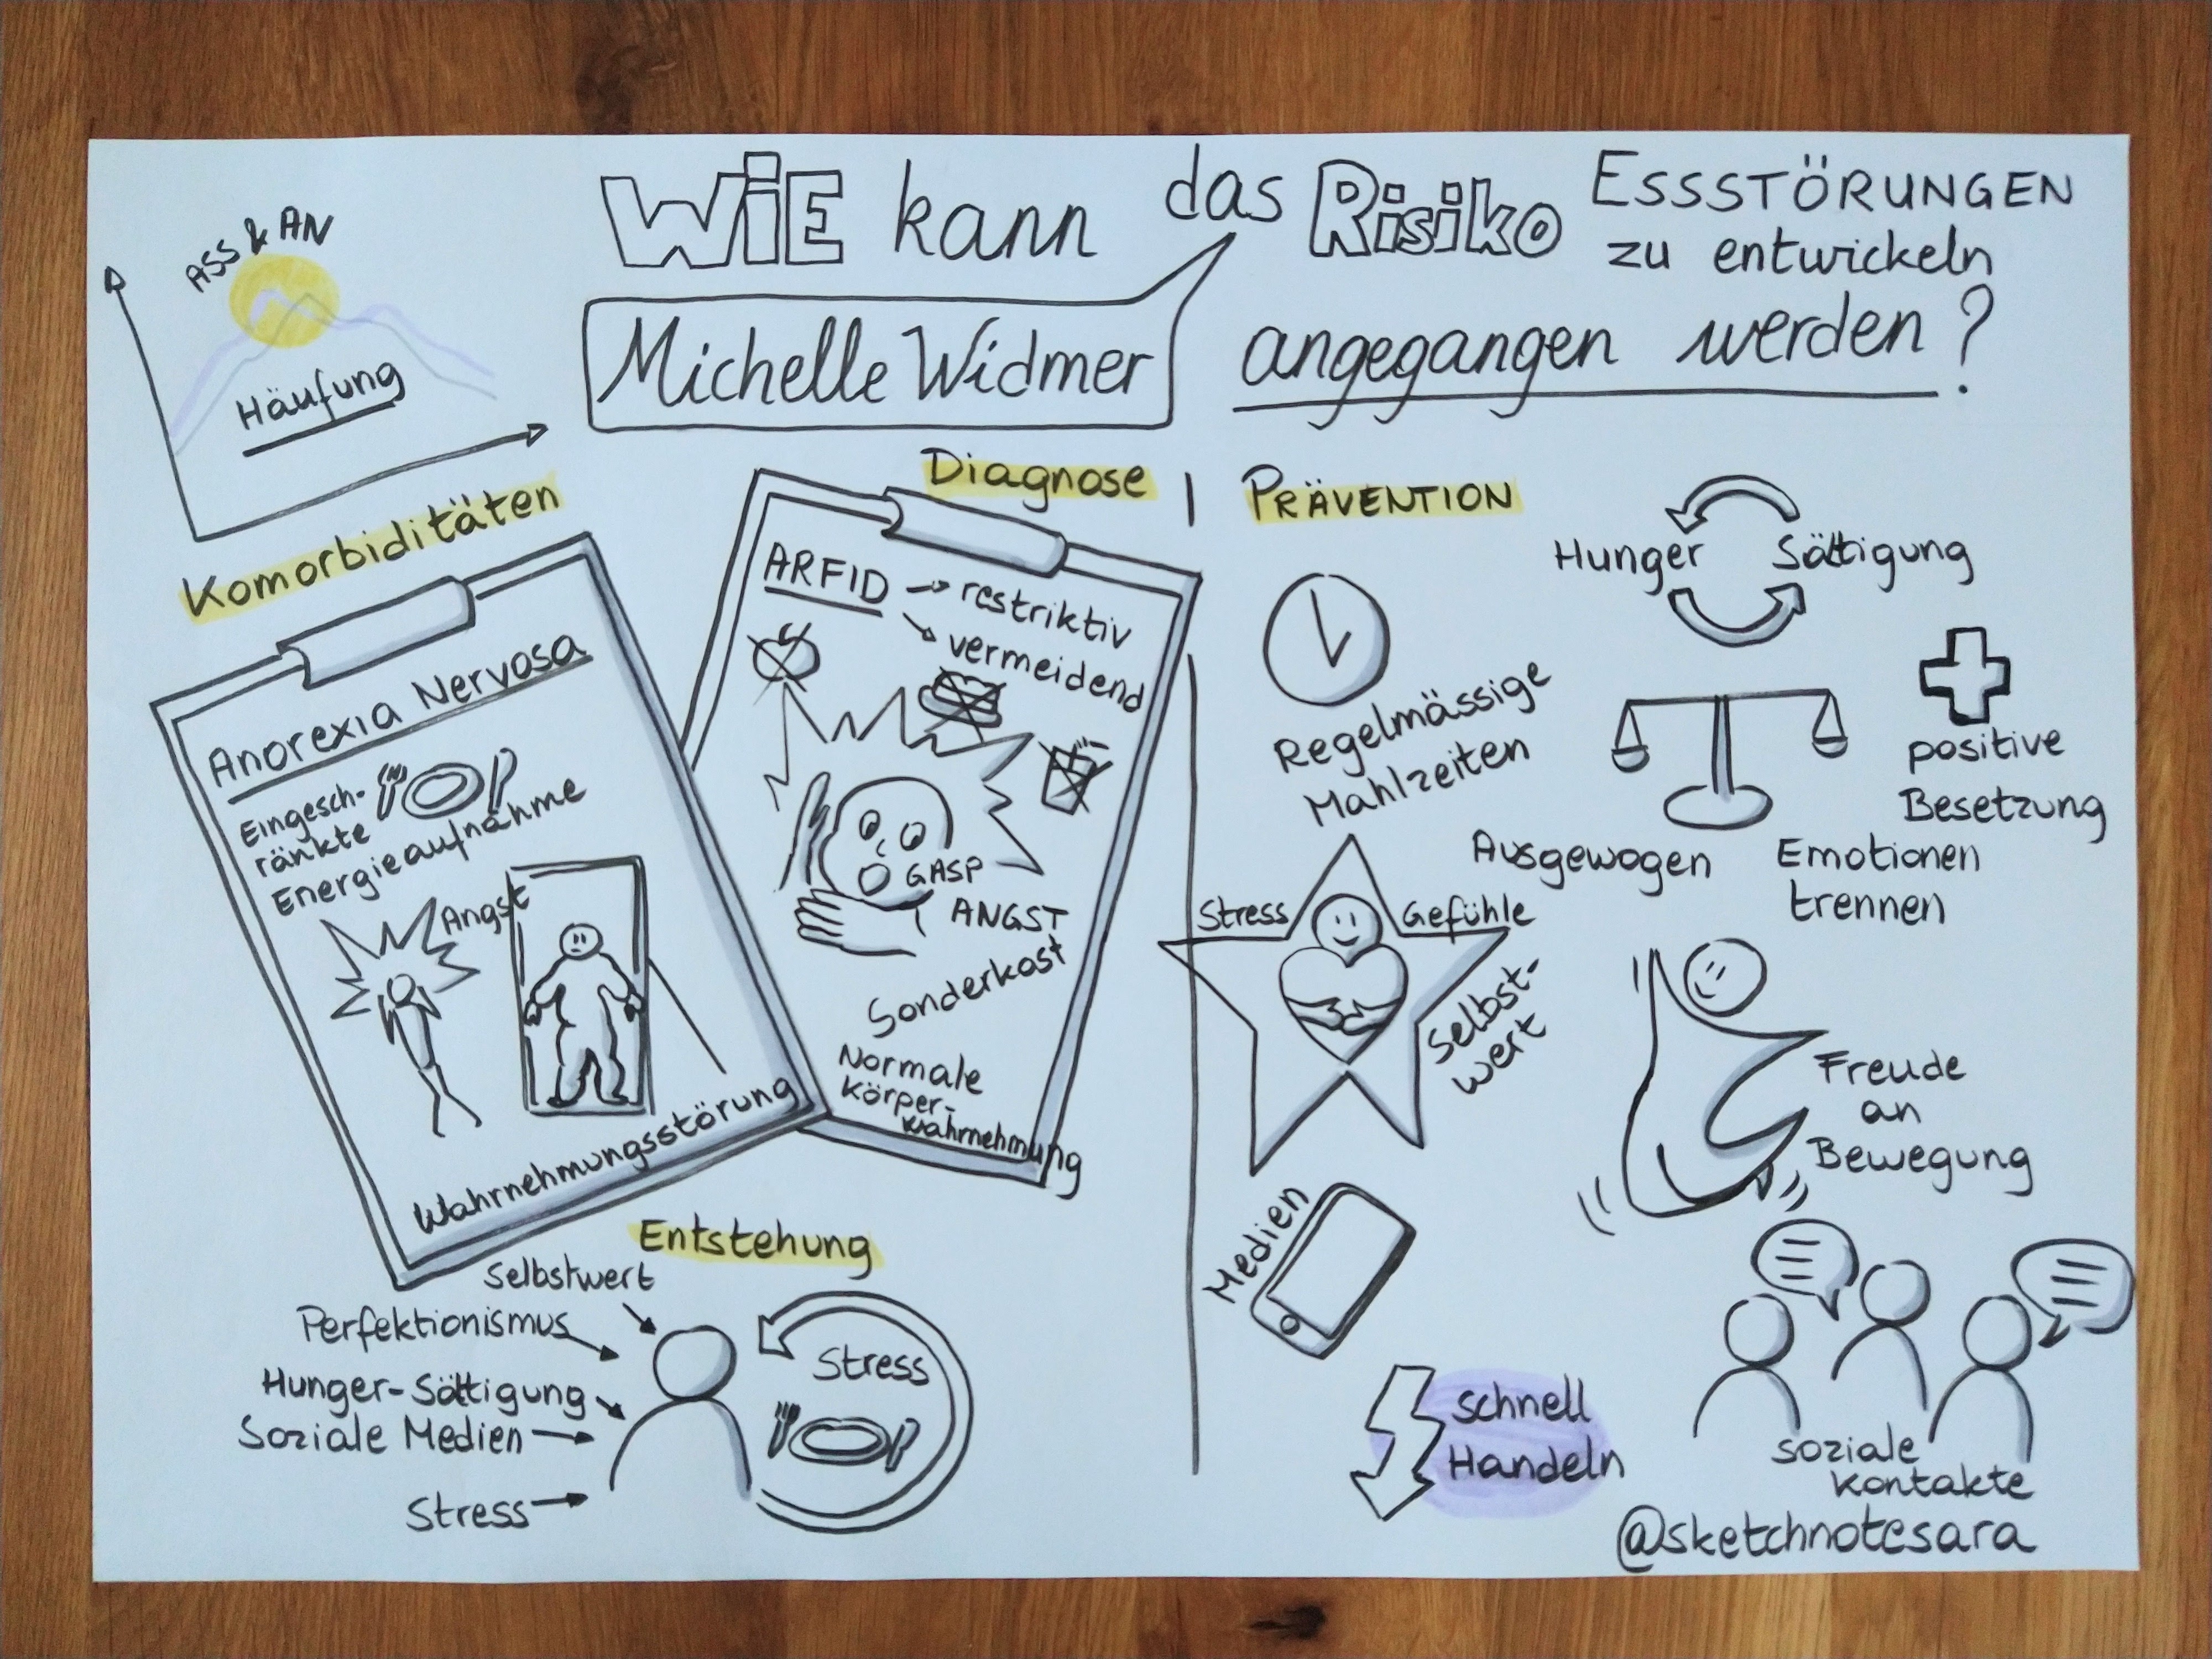 WiE kann das Risiko ESSSTÖRUNGEN
zu entwickeln
angegangen werden?
Michelle Widmer
ASS & AN
Häufung
Komorbiditäten
Anorexia Nervosa
Eingesch-
ränkte
Energieaufnahme
Angst
Wahrnehmungsstörung
Diagnose
ARFID → restriktiv
↘ vermeidend
GASP
ANGST
Sonderkost
Normale
Körper-
wahrnehmung
Entstehung
Selbstwert
Perfektionismus
Hunger-Sättigung
Soziale Medien
Stress
Stress
PRÄVENTION
Hunger Sättigung
Regelmässige
Mahlzeiten
Ausgewogen
positive
Besetzung
Emotionen
trennen
Stress
Gefühle
Selbst-
wert
Freude
an
Bewegung
Medien
schnell
Handeln
soziale
Kontakte
@sketchnotesara